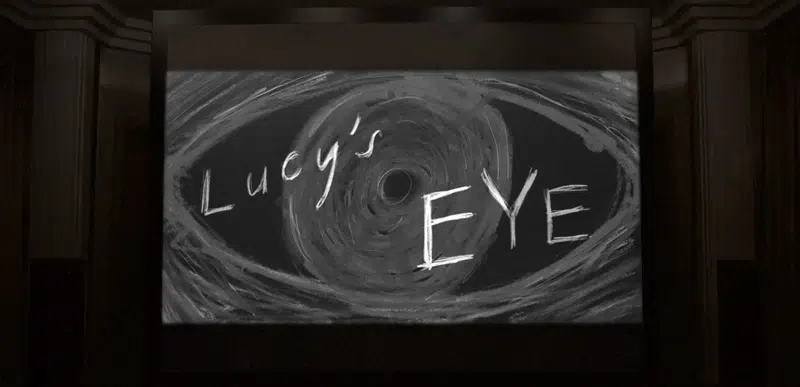 Lucy's
EYE